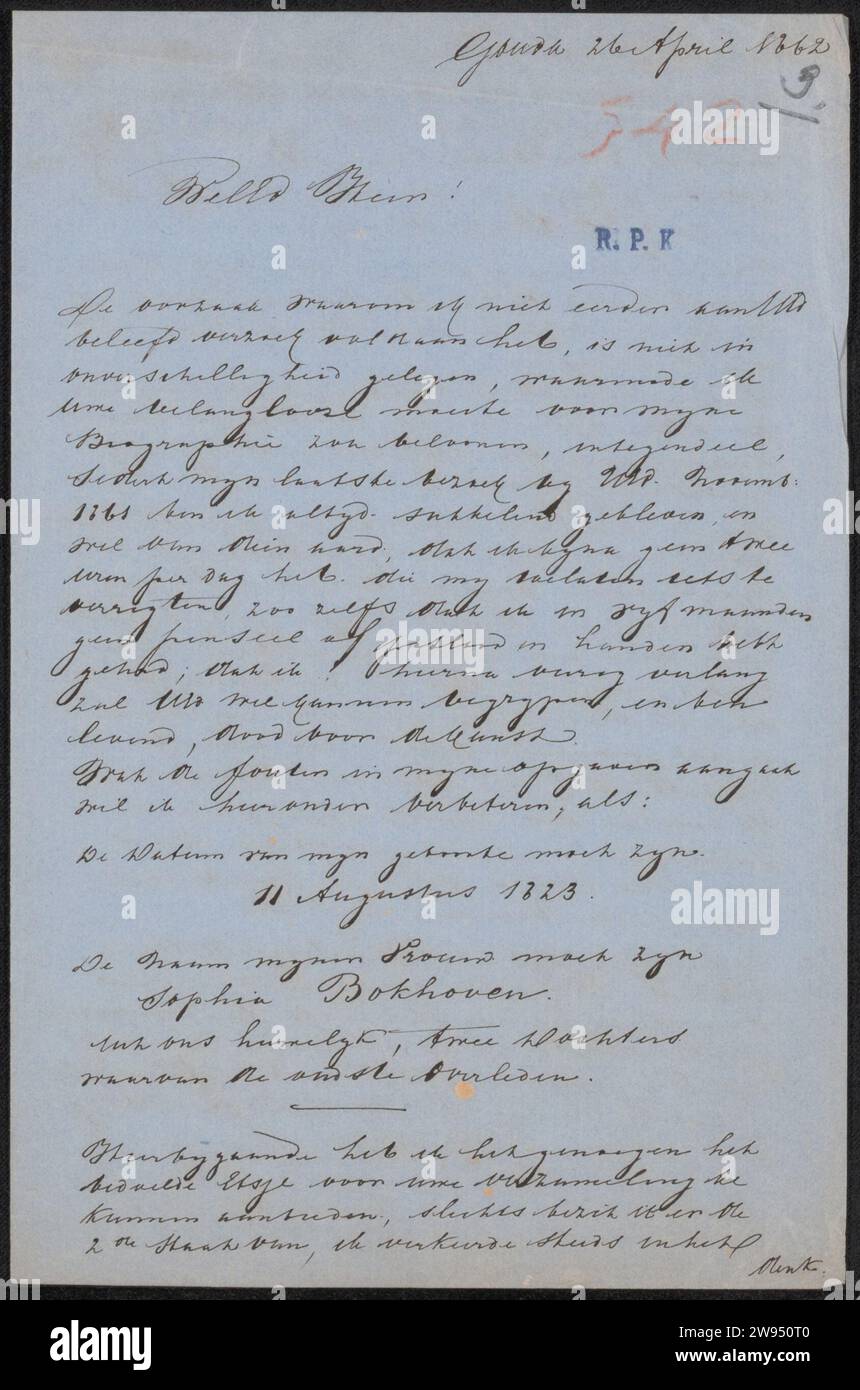 Gouda 26 April 1862
9.
542
WelEd Heer!
R. P. K
De oorzaak waarom ik niet eerder aan UEd
beleefd verzoek voldaan heb, is niet in
onverschilligheid gelegen, waarmede ik
Uwe belanglooze moeite voor myne
Biographie zou beloonen, integendeel,
Sedert myn laatste bezoek by UEd. Novemb:
1861 ben ik altyd sukkelend gebleven, en
wel van dien aard, dat ik byna geen twee
uren per dag heb die my toelaten iets te
verrigten, zoo zelfs dat ik in vyf maanden
geen penseel of potlood in handen heb
gehad; dat ik hierna vurig verlang
zal UEd wel kunnen begrypen, en ben
levend, dood voor de Kunst.
Wat de fouten in myne opgaven aangaat
wil ik hieronder verbeteren, als:
De datum van myn geboorte moet zyn.
11 Augustus 1823.
De Naam myner Vrouw moet zyn
Sophia Bokhoven.
Uit ons huwelyk, twee Dochters
waarvan de oudste overleden.
Hierbygaande heb ik het genoegen het
bedoelde Etsje voor uwe verzameling te
kunnen aanbieden, slechts bezit ik er de
2de Staat van, ik verkeerde steeds in het
denk.
alamy
Image ID: 2W950T0
www.alamy.com